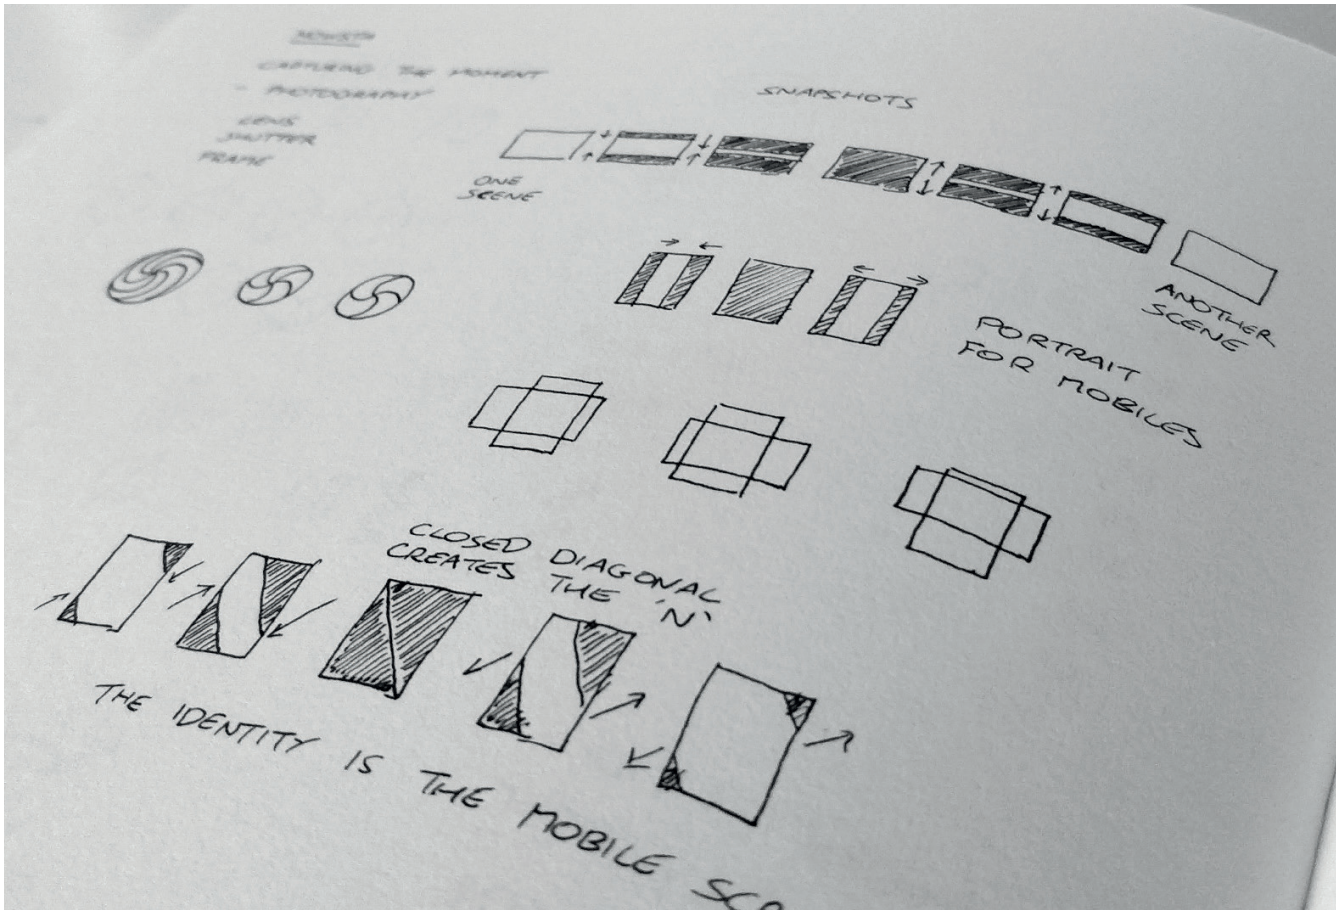 CAPTURING THE MOMENT
- PHOTOGRAPHY
LENS
SHUTTER
FRAME
SNAPSHOTS
ONE
SCENE
ANOTHER
SCENE
PORTRAIT
FOR MOBILES
CLOSED DIAGONAL
CREATES THE 'N'
THE IDENTITY IS THE MOBILE